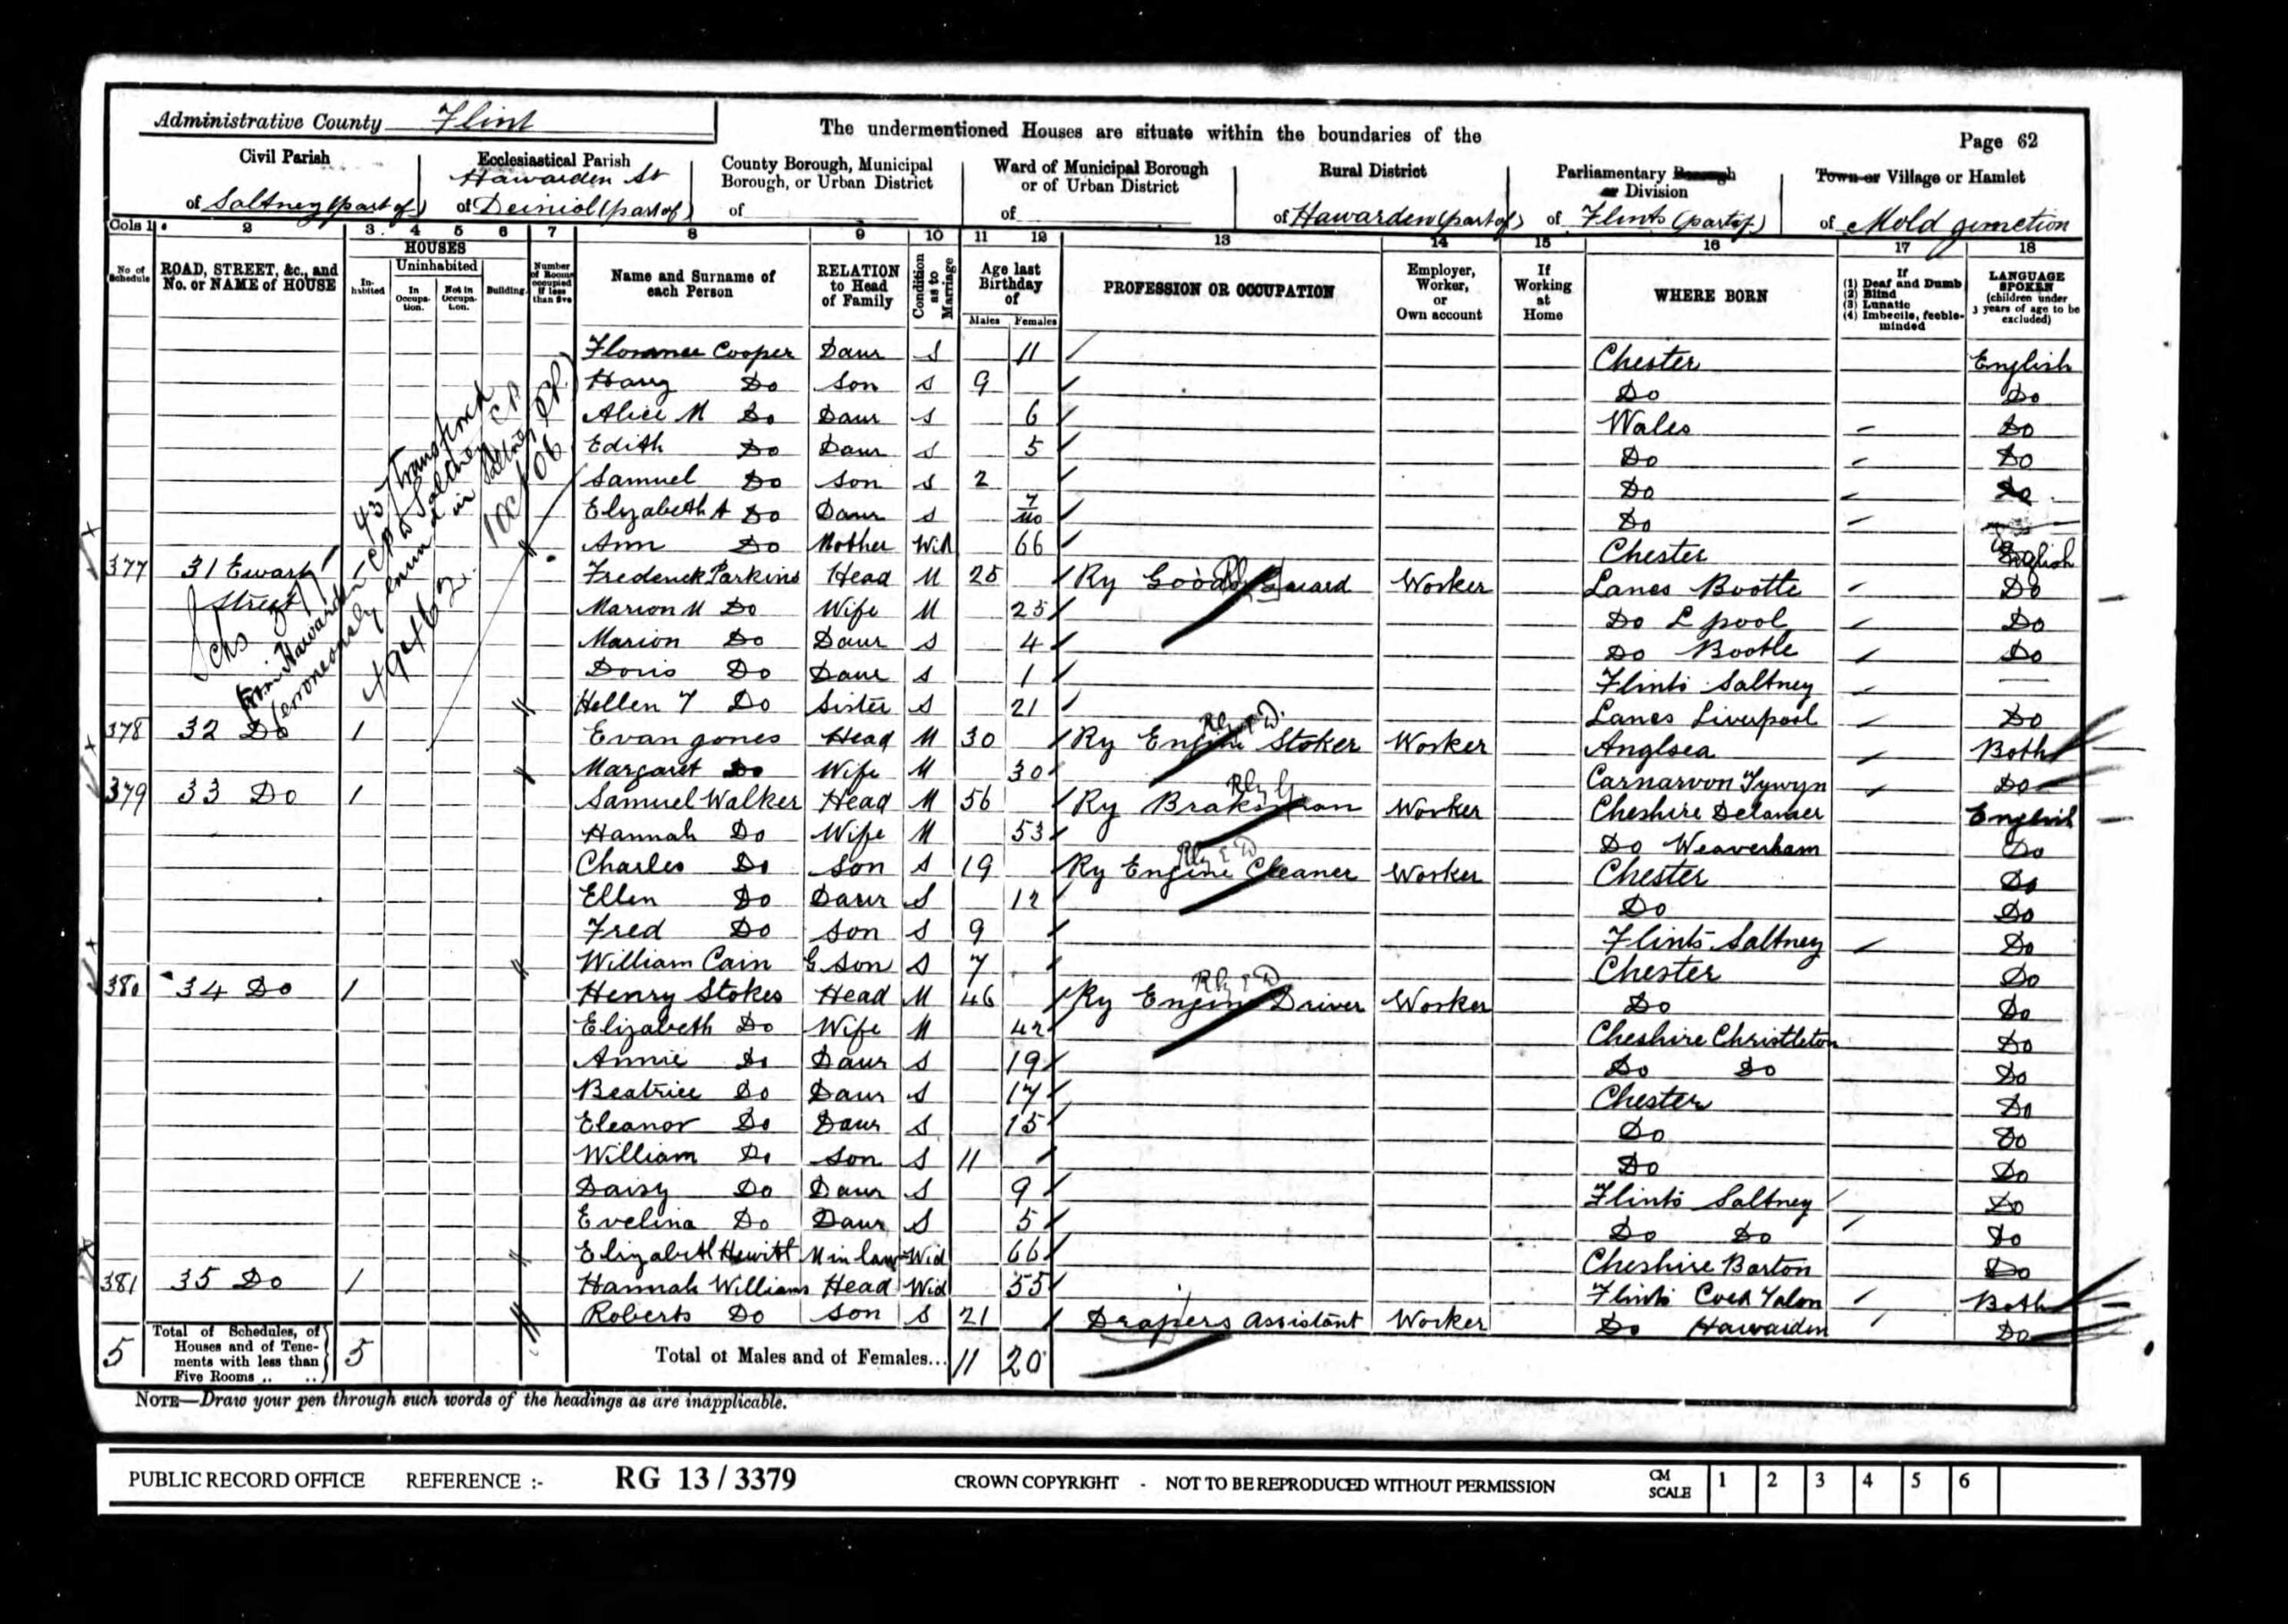 Administrative County Flint
The undermentioned Houses are situate within the boundaries of the
Page 62
Civil Parish
of Saltney (part of)
Ecclesiastical Parish
Hawarden St
of Deiniol (part of)
County Borough, Municipal Borough, or Urban District
of
Ward of Municipal Borough or of Urban District
of
Rural District
of Hawarden (part of)
Parliamentary Borough or Division
of Flints (part of)
Town or Village or Hamlet
of Mold Junction
Cols 1 2 3 4 5 6 7 8 9 10 11 12 13 14 15 16 17 18
No of Schedule
ROAD, STREET, &c., and No. or NAME of HOUSE
HOUSES
Inhabited
Uninhabited
In Occupation.
Not in Occupation.
Building
Number of Rooms occupied if less than five
Name and Surname of each Person
RELATION to Head of Family
Condition as to Marriage
Age last Birthday of
Males Females
PROFESSION OR OCCUPATION
Employer, Worker, or Own account
If Working at Home
WHERE BORN
If
(1) Deaf and Dumb
(2) Blind
(3) Lunatic
(4) Imbecile, feeble-minded
LANGUAGE SPOKEN (children under 3 years of age to be excluded)
Florence Cooper Daur S 11 Chester English
Harry Do Son S 9 Do Do
Alice M Do Daur S 6 Wales Do
Edith Do Daur S 5 Do Do
Samuel Do Son S 2 Do Do
Elizabeth A Do Daur S 7/mo Do
Ann Do Mother Wid 66 Chester English
377 31 Ewart Street 1 Frederick Parkins Head M 25 Ry Goods Guard Worker Lancs Bootle Do
Marion M Do Wife M 25 Do L'pool Do
Marion Do Daur S 4 Do Bootle Do
Doris Do Daur S 1 Flints Saltney
Hellen Y Do Sister S 21 Lancs Liverpool Do
378 32 Do 1 Evan Jones Head M 30 Ry Engine Stoker Worker Anglsea Both
Margaret Do Wife M 30 Carnarvon Tywyn Do
379 33 Do 1 Samuel Walker Head M 56 Ry Braksman Worker Cheshire Delamer English
Hannah Do Wife M 53 Do Weaverham Do
Charles Do Son S 19 Ry Engine Cleaner Worker Chester Do
Ellen Do Daur S 12 Do Do
Fred Do Son S 9 Flints Saltney Do
William Cain G Son S 7 Chester Do
380 34 Do 1 Henry Stokes Head M 46 Ry Engine Driver Worker Do Do
Elizabeth Do Wife M 42 Cheshire Christleton Do
Annie Do Daur S 19 Do Do Do
Beatrice Do Daur S 17 Chester Do
Eleanor Do Daur S 15 Do Do
William Do Son S 11 Do Do
Daisy Do Daur S 9 Flints Saltney Do
Evelina Do Daur S 5 Do Do Do
Elizabeth Hewitt M in law Wid 66 Cheshire Barton Do
381 35 Do 1 Hannah Williams Head Wid 55 Flints Coed Talon Both
Roberts Do Son S 21 Drapers Assistant Worker Do Hawarden Do
5 Total of Schedules, of Houses and of Tenements with less than Five Rooms .. .. 5
Total of Males and of Females... 11 20
NOTE—Draw your pen through such words of the headings as are inapplicable.
PUBLIC RECORD OFFICE REFERENCE :- RG 13 / 3379 CROWN COPYRIGHT - NOT TO BE REPRODUCED WITHOUT PERMISSION CM SCALE 1 2 3 4 5 6